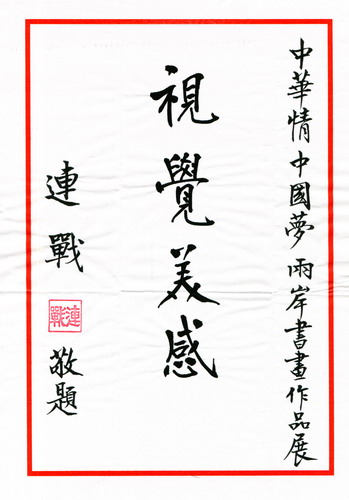 中華情中國夢兩岸書畫作品展
視覺美感
連戰
連戰
敬題